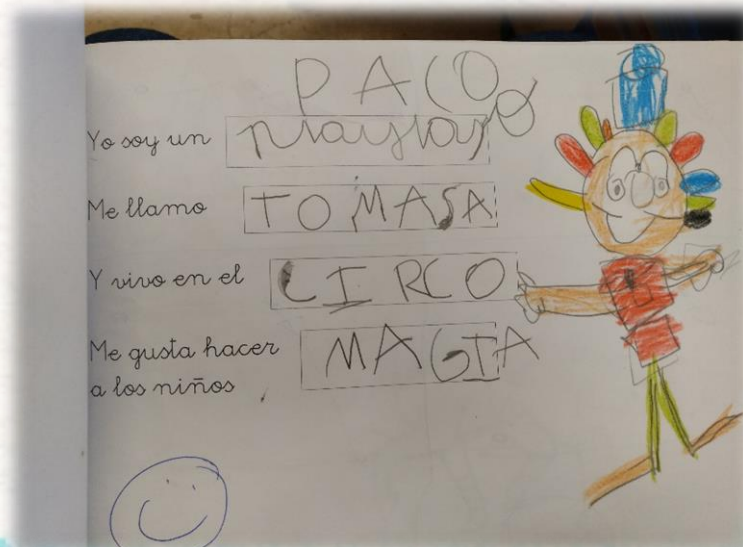 PACO
Yo soy un payaso
Me llamo TOMASA
Y vivo en el CIRCO
Me gusta hacer MAGIA
a los niños